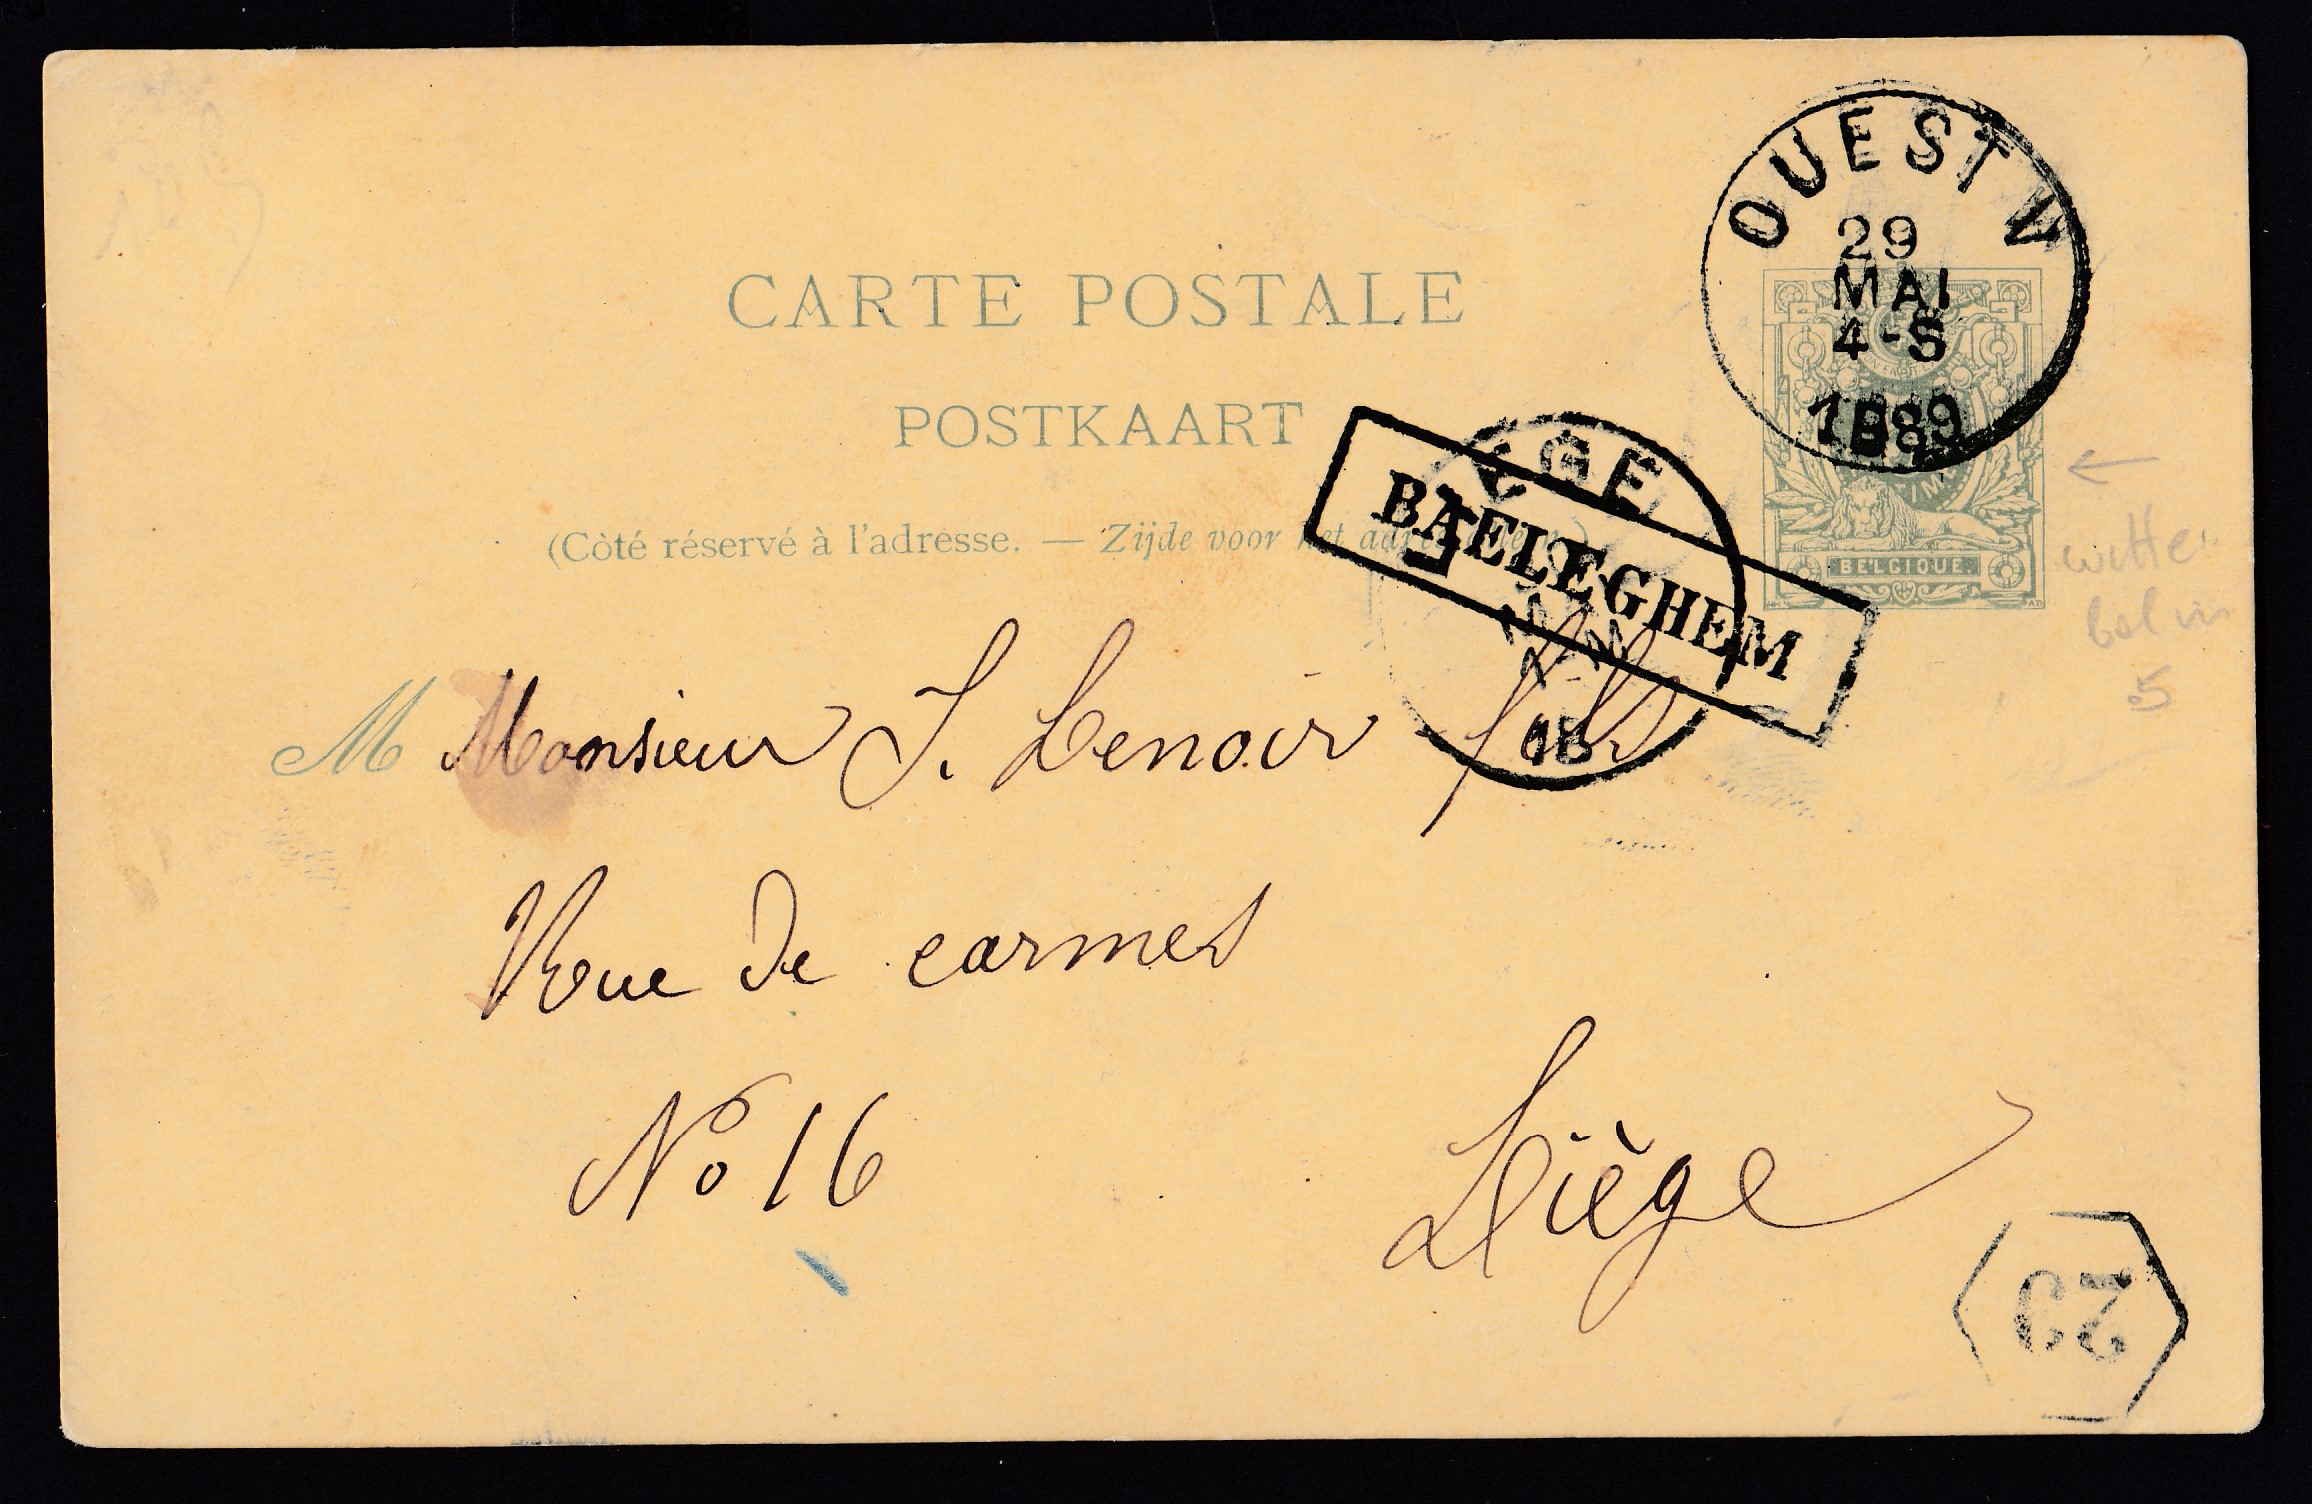 OUEST V
29
MAI
4-S
1889
CARTE POSTALE
POSTKAART
(Côté réservé à l'adresse. — Zijde voor het
BAELEGHEM
BELGIQUE.
witte
bol in
5
M Monsieur J. Lenoir fils
Rue de carmes
No 16
Liège